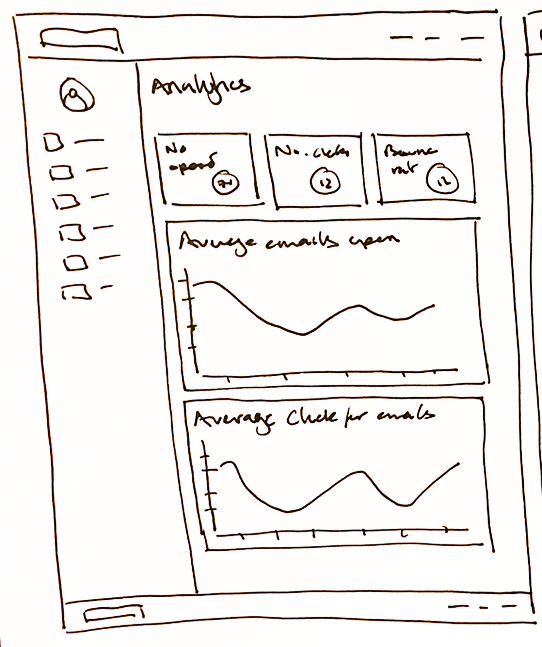 Analytics
No
opened
24
No. clicks
12
Bounce
rat
12
Average emails open
Average Click per emails